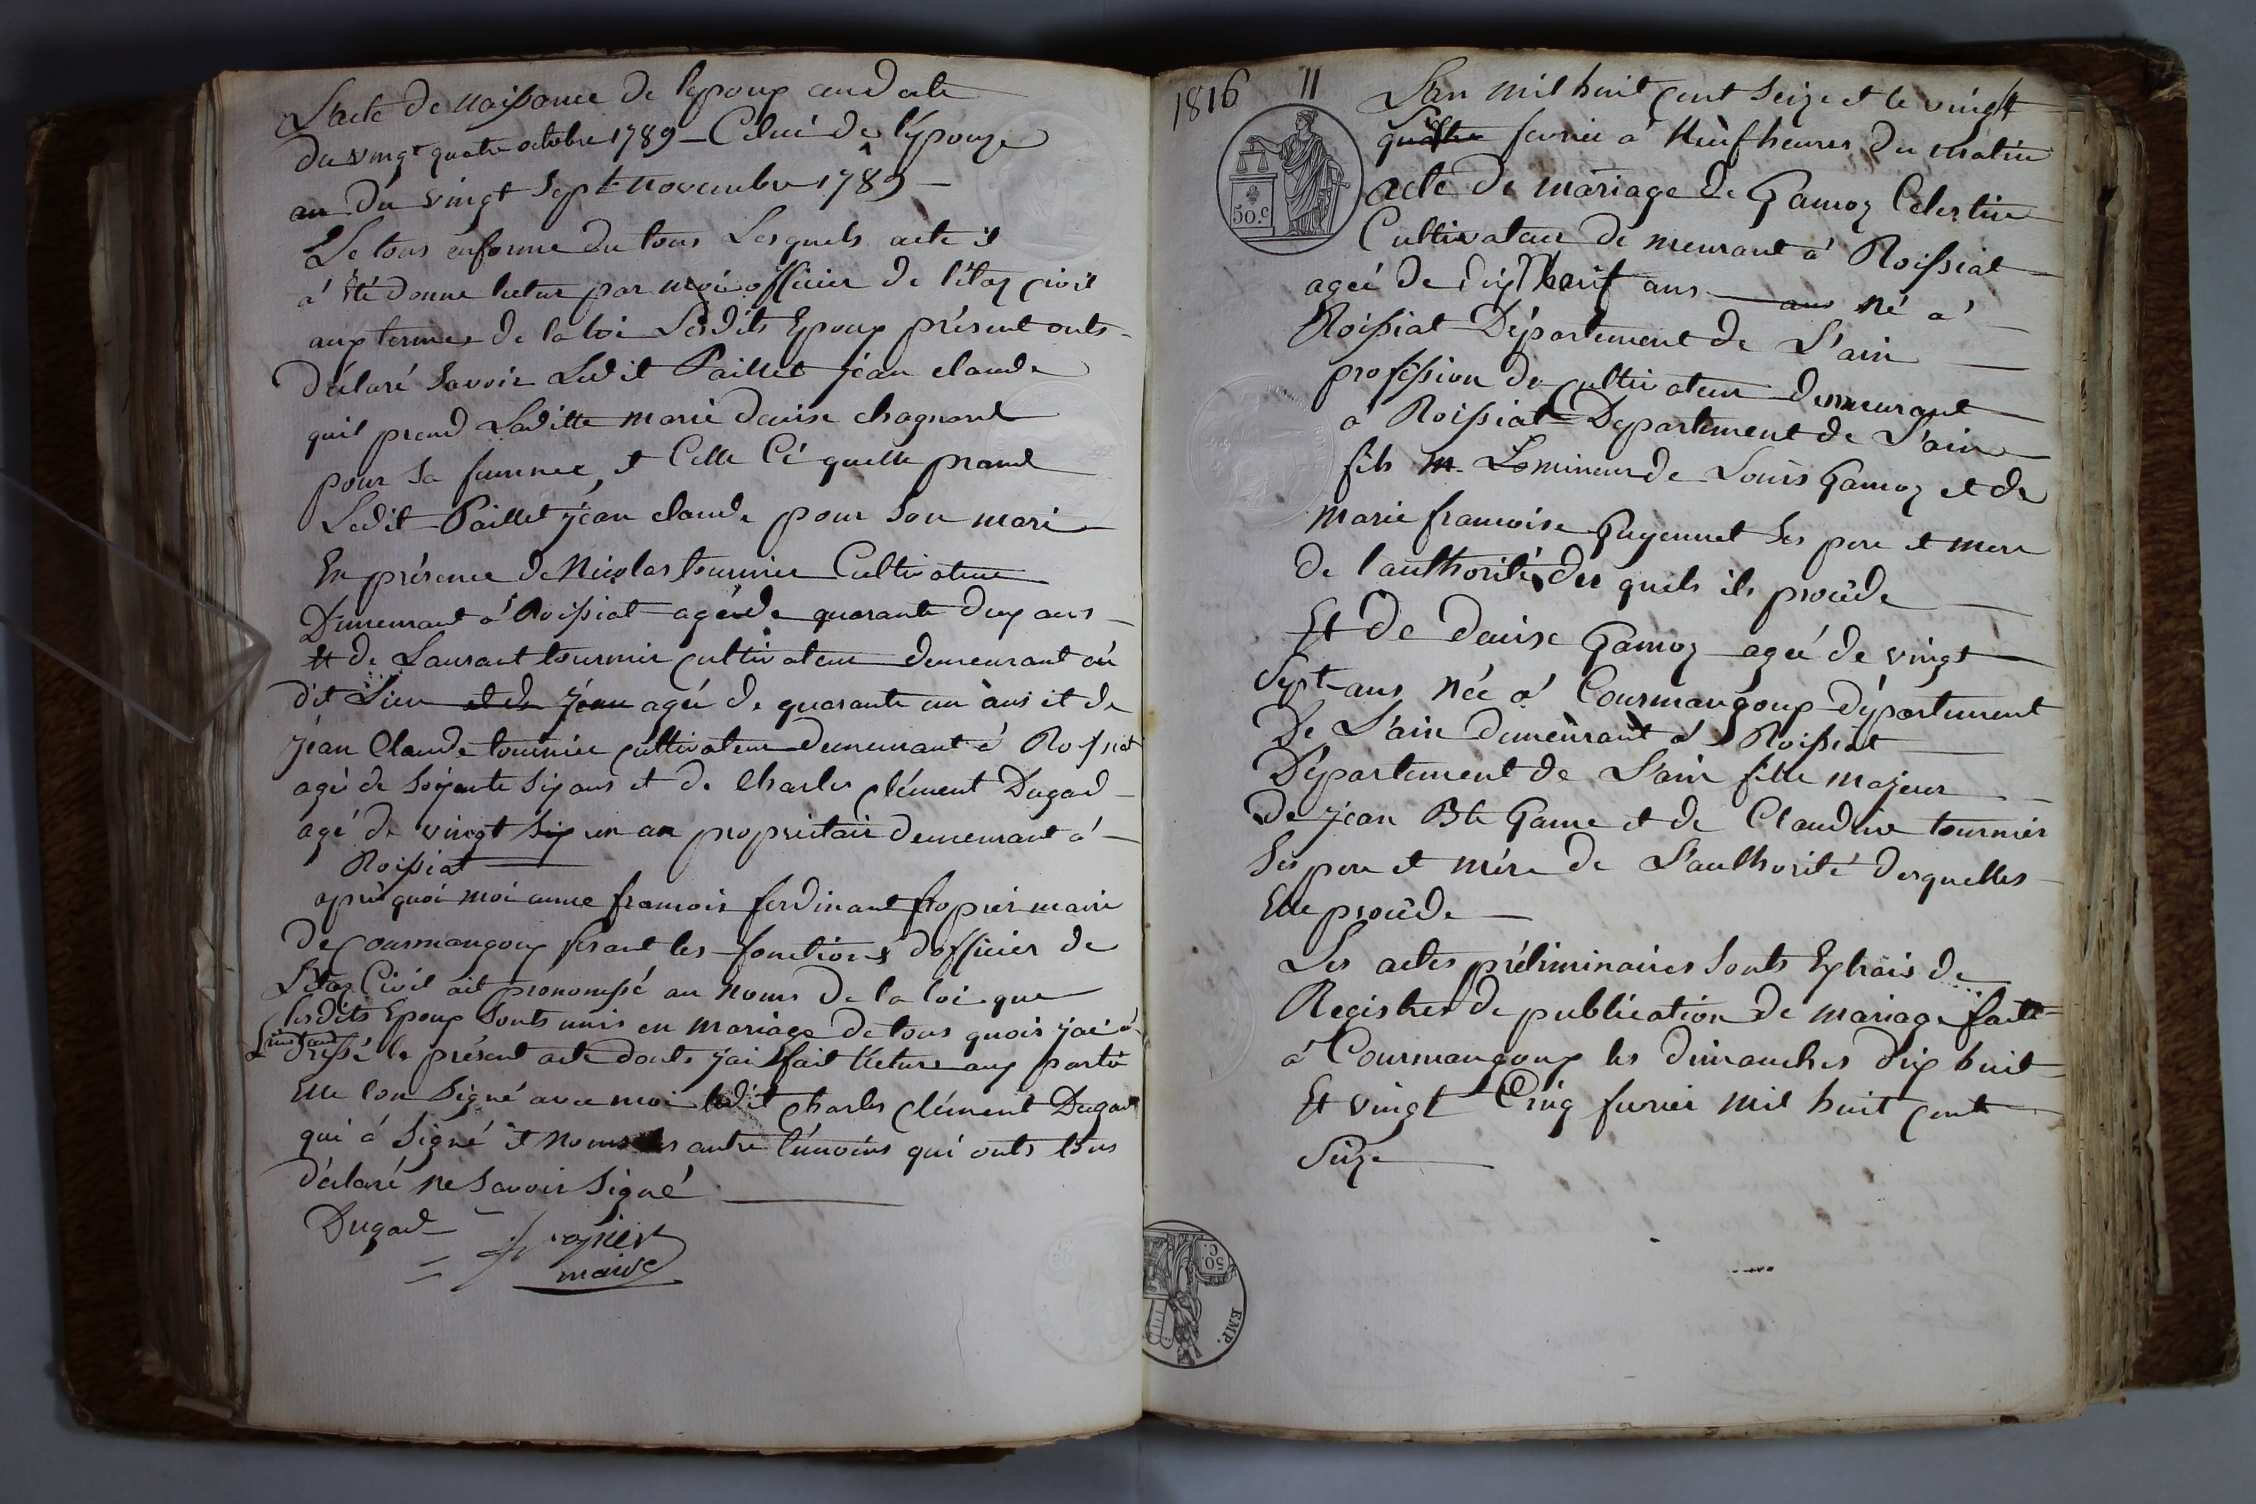 L'acte de naissance de l'epoux en date
du vingt quatre octobre 1789 — Celui de l'épouze
au du vingt Sept novembre 1789 —
Le tous enforme du tous Lesquels acte il
a été donne lectur par moi officier de l'état civil
aux termes de la loi Lesdits Epoux présent onts
déclaré Savoir Ledit Paillet jéan claude
quil prend Laditte marie denise chagnard
pour Sa femme, et Celle Ci quelle prand
Ledit Paillet jéan claude pour Son mari
En présence de Nicolas tournier Cultivateur
Demeurant a Roissiat agé de quarante deux ans
et de Laurant tournier cultivateur demeurant au
dit Lieu et de jéan agé de quarante un ans et de
jéan Claude tournier cultivateur demeurant a Roissiat
agé de Soixante Six ans et de Charles clément Dugad
agé de vingt six un an proprietaire demeurant a
Roissiat
aprés quoi moi anne francois ferdinant fropier maire
de Courmangoux fesant les fonctions d'officier de
L'etat Civil ait prononssé au noms de la loi que
lesdits Epoux Sonts unis en mariage de tous quois j'ai a
L'instant
dréssé le présent acte donts j'ai fait lécture aux partie
Elle lon Signé avec moi ledit Charles clément Dugad
qui a Signé et nom les autre témoins qui onts tous
déclaré ne Savoir Signé
Dugad
fropier
maire
1816
11
L'an mil huit cent Seize et le vingt
quatre fevrier a Neuf heures du matin
acte de mariage de Gamoz Celestin
Cultivateur de meurant a Roissiat
50.c
agée de dix huit ans ans né a
Roissiat Département de L'ain
profession de Cultivateur demeurant
a Roissiat Departement de L'ain
fils m. Lo mineur de Louis Gamoz et de
marie francoise Guyennet Ses pere et mere
de l'authorité des quels ils procéde
Et de denise Gamoz agée de vingt
Sept ans née a Courmangoux département
De L'ain demeurant a Roissiat
Département de L'ain fille majeur
de jéan Bte Game et de Claudine tournier
Ses pere et mére de L'authorité desquelles
Elle procéde
Les actes préliminaires Sonts Extrais de
Registres de publication de mariage faite
a Courmangoux les dimanches dix huit
Et vingt Cinq fevrier mil huit cent
Seize
50 C.
EMP.